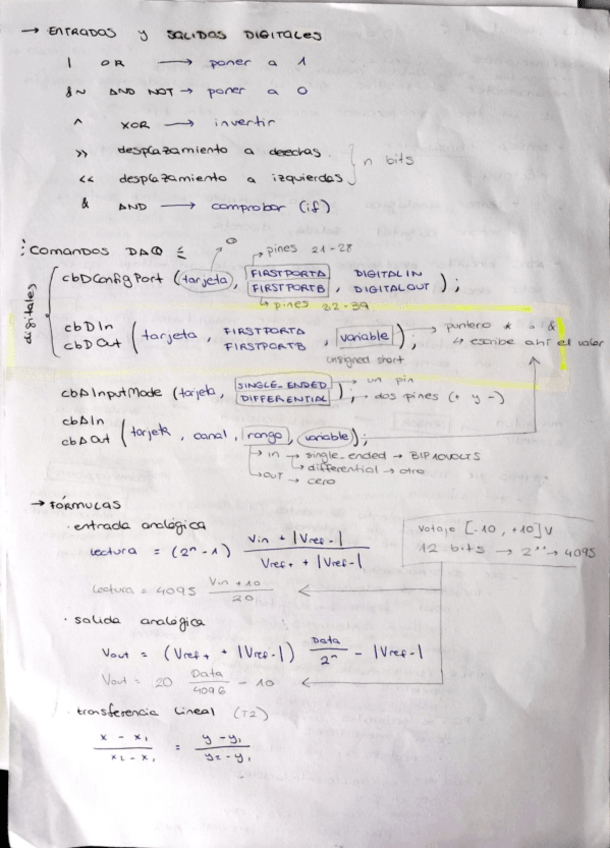 → ENTRADAS y SALIDAS DIGITALES
| OR → poner a 1
&~ AND NOT → poner a 0
^ XOR → invertir
>> desplazamiento a deechas } n bits
<< desplazamiento a izquierdas
& AND → comprobar (if)
Comandos DAQ
0
pines 21-28
digitales
cbDConfigPort (tarjeta, FIRSTPORTA DIGITALIN
FIRSTPORTB, DIGITALOUT);
pines 32-39
cbDIn
cbDOut (tarjeta, FIRSTPORTA
FIRSTPORTB, variable); → puntero * &
↳ escribe ahí el valor
unsigned short
cbAInputMode (tarjeta, SINGLE_ENDED → un pin
DIFFERENTIAL); → dos pines (+ y -)
cbAIn
cbAOut (tarjeta, canal, rango, variable);
↳ in → single_ended → BIP10VOLTS
↳ differential → otro
↳ OUT → cero
→ FÓRMULAS
· entrada analógica
Lectura = (2ⁿ - 1) (Vin + |Vref-|) / (Vref+ + |Vref-|)
Votaje [-10, +10] V
12 bits → 2¹² → 4095
Lectura = 4095 (Vin + 10) / 20 ←
· salida analógica
Vout = (Vref+ + |Vref-|) Data / 2ⁿ - |Vref-|
Vout = 20 Data / 4096 - 10 ←
· transferencia lineal (T2)
(x - x₁) / (x₂ - x₁) = (y - y₁) / (y₂ - y₁)